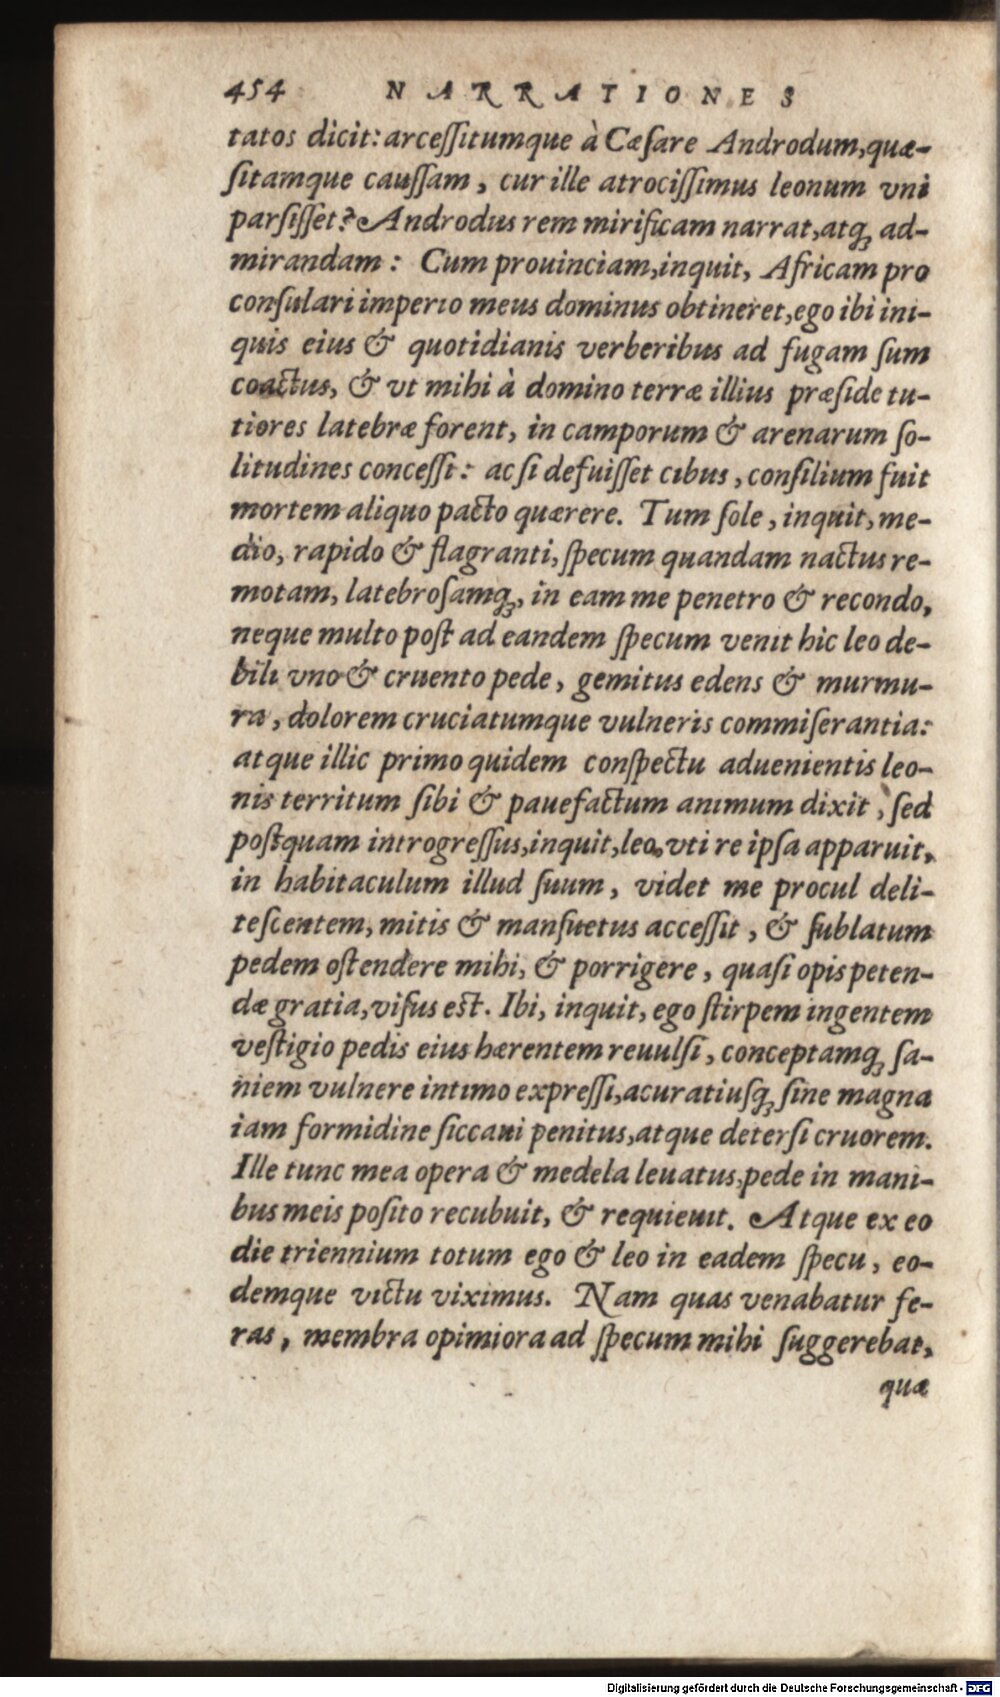 454 NARRATIONES
tatos dicit: arceſſitumque à Cæſare Androdum, quæ-
ſitamque cauſſam, cur ille atrociſſimus leonum vni
parſiſſet? Androdus rem mirificam narrat, atq; ad-
mirandam: Cum prouinciam, inquit, Africam pro
conſulari imperio meus dominus obtineret, ego ibi ini-
quis eius & quotidianis verberibus ad fugam ſum
coactus, & vt mihi à domino terræ illius præſide tu-
tiores latebræ forent, in camporum & arenarum ſo-
litudines conceſſi: ac ſi defuiſſet cibus, conſilium fuit
mortem aliquo pacto quærere. Tum ſole, inquit, me-
dio, rapido & flagranti, ſpecum quandam nactus re-
motam, latebroſamq;, in eam me penetro & recondo,
neque multo poſt ad eandem ſpecum venit hic leo de-
bili vno & cruento pede, gemitus edens & murmu-
ra, dolorem cruciatumque vulneris commiſerantia:
atque illic primo quidem conſpectu aduenientis leo-
nis territum ſibi & pauefactum animum dixit, ſed
poſtquam introgreſſus, inquit, leo, vti re ipſa apparuit,
in habitaculum illud ſuum, videt me procul deli-
teſcentem, mitis & manſuetus acceſſit, & ſublatum
pedem oſtendere mihi, & porrigere, quaſi opis peten-
dæ gratia, viſus est. Ibi, inquit, ego ſtirpem ingentem
veſtigio pedis eius hærentem reuulſi, conceptamq; ſa-
niem vulnere intimo expreſſi, acuratiuſq; ſine magna
iam formidine ſiccaui penitus, atque deterſi cruorem.
Ille tunc mea opera & medela leuatus, pede in mani-
bus meis poſito recubuit, & requieuit. Atque ex eo
die triennium totum ego & leo in eadem ſpecu, eo-
demque victu viximus. Nam quas venabatur fe-
ras, membra opimiora ad ſpecum mihi ſuggerebat,
quæ
Digitalisierung gefördert durch die Deutsche Forschungsgemeinschaft - DFG